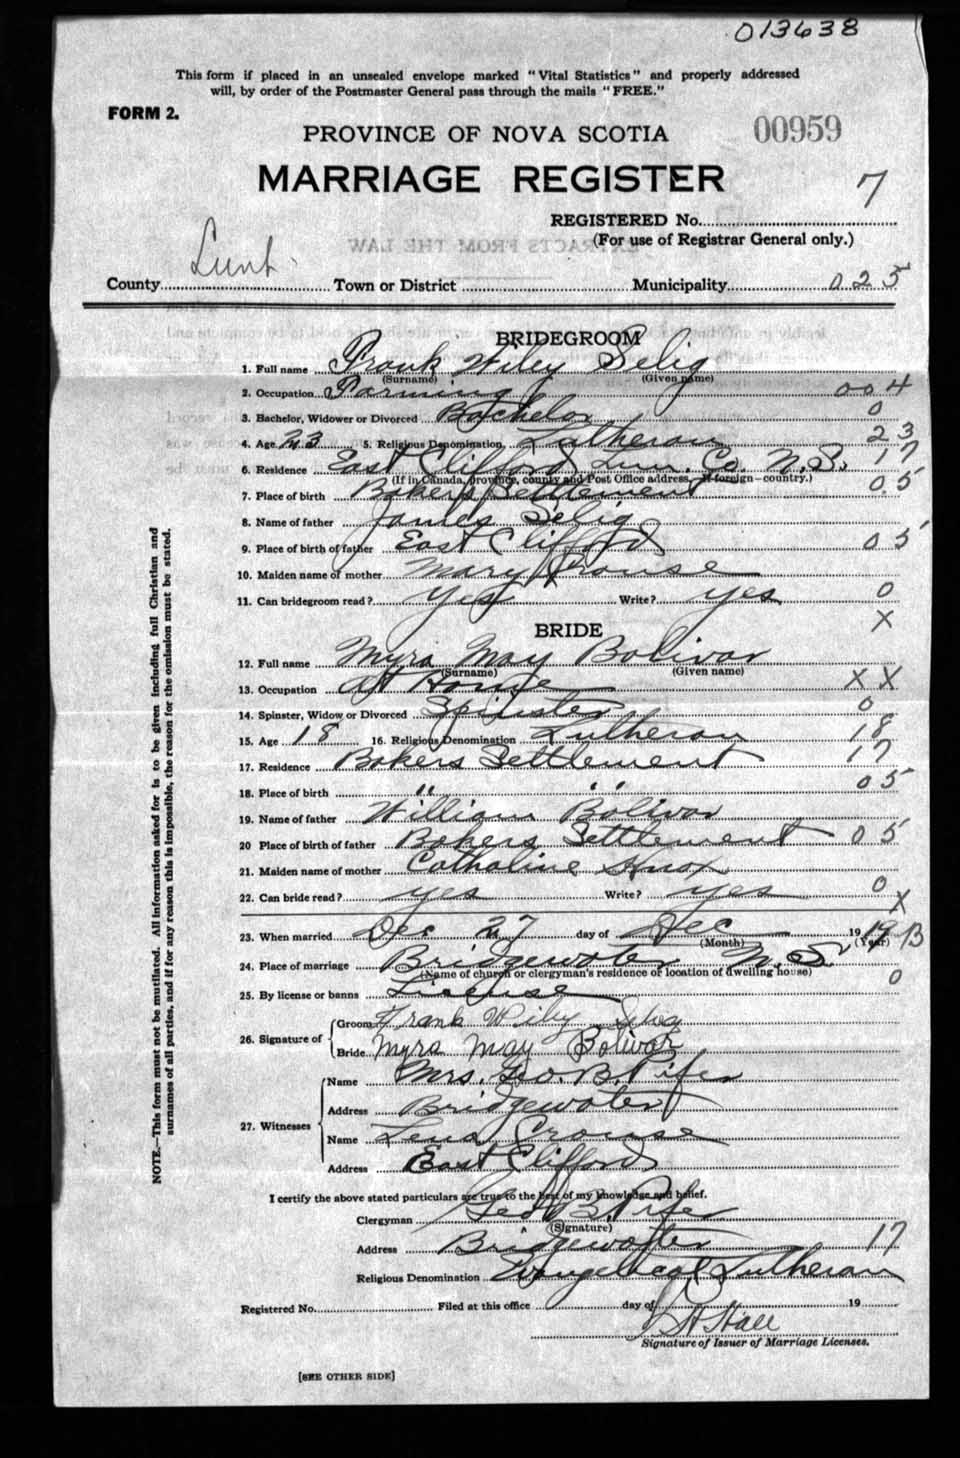 013638
This form if placed in an unsealed envelope marked "Vital Statistics" and properly addressed
will, by order of the Postmaster General pass through the mails "FREE."
FORM 2.
PROVINCE OF NOVA SCOTIA 00959
MARRIAGE REGISTER
REGISTERED No. 7
(For use of Registrar General only.)
County Lunb. Town or District Municipality 025
BRIDEGROOM
1. Full name Frank Wiley Selig
(Surname) (Given name)
2. Occupation Farming 004
3. Bachelor, Widower or Divorced Bachelor 0
4. Age 23 5. Religious Denomination Lutheran 23
6. Residence East Clifford, Lun. Co. N.S. 17
(If in Canada, province, county and Post Office address, if foreign—country.)
7. Place of birth Bakers Settlement 05
8. Name of father James Selig
9. Place of birth of father East Clifford 05
10. Maiden name of mother Mary Crouse
11. Can bridegroom read? Yes Write? yes 0
X
BRIDE
12. Full name Myra May Bolivar
(Surname) (Given name)
13. Occupation At Home X X
14. Spinster, Widow or Divorced Spinster 0
15. Age 18 16. Religious Denomination Lutheran 18
17. Residence Bakers Settlement 17
18. Place of birth " " 05
19. Name of father William Bolivar
20 Place of birth of father Bakers Settlement 05
21. Maiden name of mother Cathaline Knox
22. Can bride read? yes Write? yes 0
X
23. When married Dec 27 day of Dec 19 19
(Month) (Year)
24. Place of marriage Bridgewater N.S.
(Name of church or clergyman's residence or location of dwelling house)
25. By license or banns License 0
26. Signature of Groom Frank Wiley Selig
Bride Myra May Bolivar
27. Witnesses Name Mrs. Geo. B. Pifer
Address Bridgewater
Name Lena Crouse
Address East Clifford
I certify the above stated particulars are true to the best of my knowledge and belief.
Clergyman Geo B. Pifer
(Signature)
Address Bridgewater 17
Religious Denomination Evangelical Lutheran
Registered No. Filed at this office day of 19
Hall
Signature of Issuer of Marriage Licenses.
[SEE OTHER SIDE]
NOTE.—This form must not be mutilated. All information asked for is to be given including full Christian and
surnames of all parties, and if for any reason this is impossible, the reason for the omission must be stated.